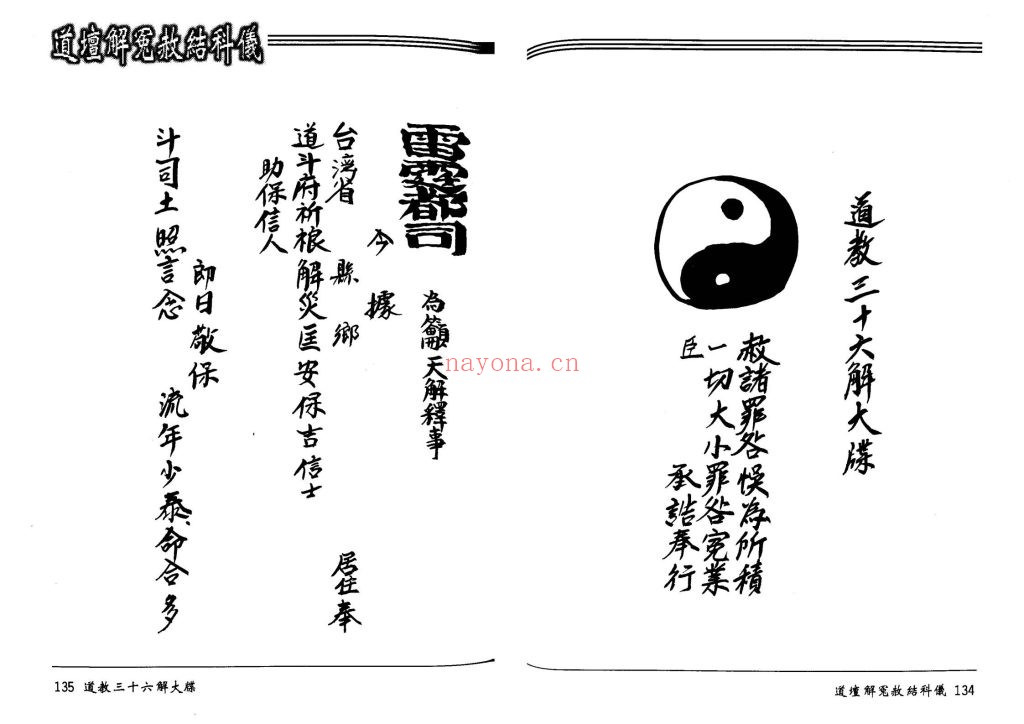 道教三十六解大牒
赦諸罪咎悮為所積
一切大小罪咎冤業
臣
承誥奉行
道壇解冤赦結科儀 134
道壇解冤赦結科儀
雷霆都司
為籲天解釋事
今據
台湾省 縣 鄉 居住奉
道斗府祈根解災匡安保吉信士
助保信人
即日敬保
斗司土照言念 流年少泰命合多
135 道教三十六解大牒
nayona.cn